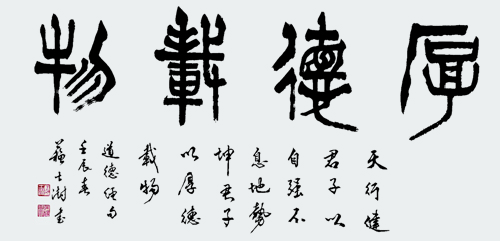 厚德載物
天行健
君子以
自强不
息地勢
坤君子
以厚德
載物
道德句
壬辰春
蘇士澍書